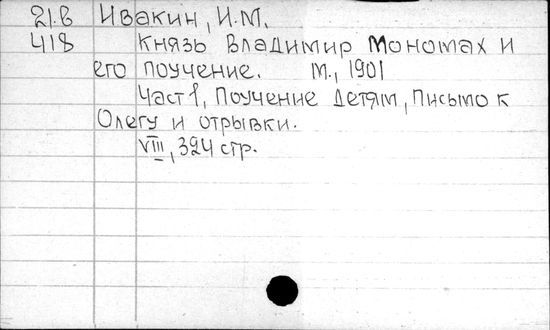 21.в Ивакин, И.М.
418 Князь Владимир Мономах и
его поучение. М., 1901
Част 1, Поучение Детям, Письмо к
Олегу и отрывки.
VIII, 324 стр.